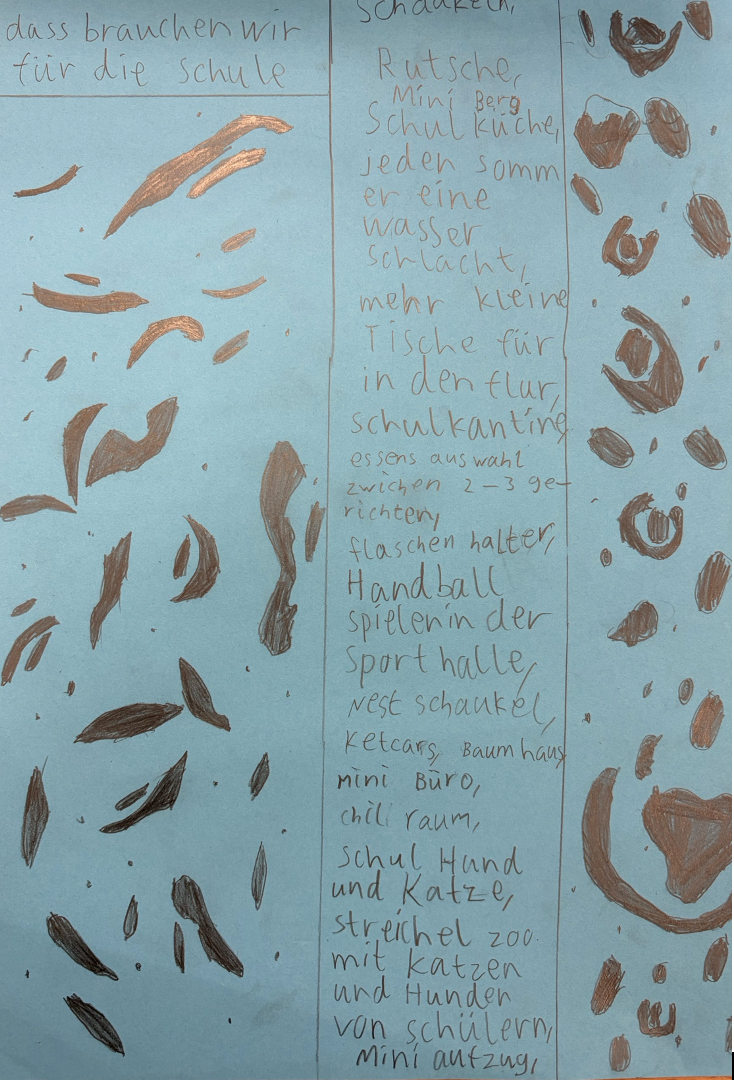 dass brauchen wir
für die schule
schaukeln,
Rutsche,
Mini Berg
Schulküche,
jeden somm
er eine
wasser
schlacht,
mehr kleine
Tische für
in den flur,
schulkantine
essens auswahl
zwichen 2-3 ge-
richten,
flaschen halter,
Handball
spielen in der
Sporthalle,
Nest schaukel,
ketcars, Baumhaus
mini Büro,
chili raum,
schul Hund
und Katze,
streichel zoo
mit katzen
und Hunden
von schülern,
Mini aufzug,